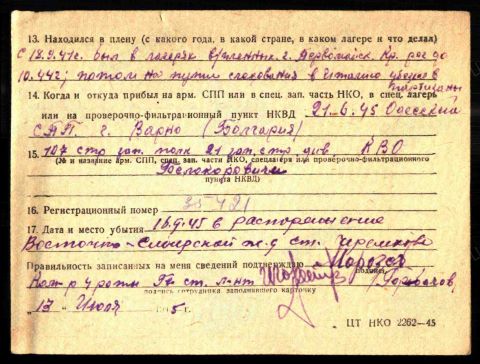 13. Находился в плену (с какого года, в какой стране, в каком лагере и что делал)
С 18.9.41г. был в лагерях в/пленных г. Первомайск, Кр. рог до
10.44г; потом на пути следования в Италию убежал в
партизаны
14. Когда и откуда прибыл на арм. СПП или в спец. зап. часть НКО, в спец. лагерь
или на проверочно-фильтрационный пункт НКВД 21.6.45 Одесский
СПП г. Варно (Болгария)
15. 107 стр зап. полк 21 зап. стр див КВО
(№ и название арм. СПП, спец. зап. части НКО, спецлагеря или проверочно-фильтрационного
Белокоровичи
пункта НКВД)
16. Регистрационный номер
17. Дата и место убытия 16.9.45 в распоряжение
Восточно-Сибирской ж.д ст. Черемхово
Правильность записанных на меня сведений подтверждаю
подпись
Ком-р 4 роты ст. л-нт Горбачов
подпись сотрудника заполнившего карточку
„13" Июля 1945г.
ЦТ НКО 2262—45